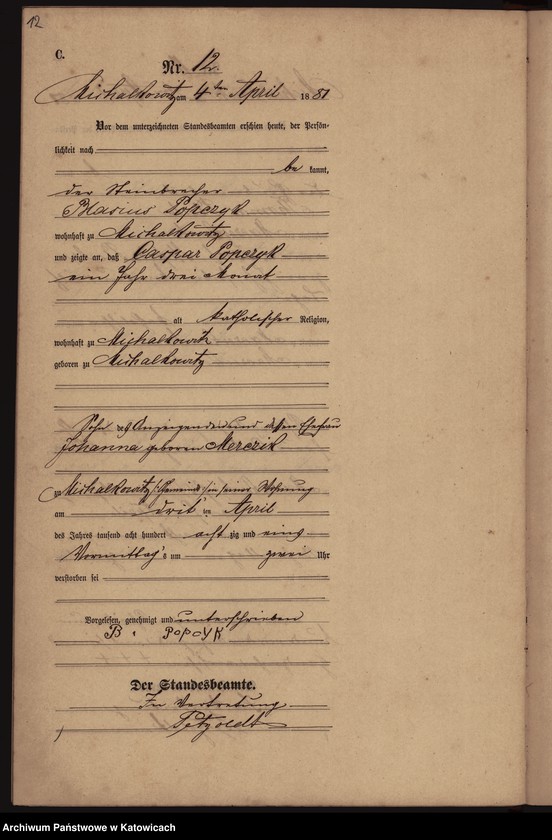 12
C.
Nr. 12.
Michalkowitz am 4ten April 1881
Vor dem unterzeichneten Standesbeamten erschien heute, der Persön-
lichkeit nach
be kannt,
der Steinbrecher
Blasius Popczyk
wohnhaft zu Michalkowitz
und zeigte an, daß Caspar Popczyk
ein Jahr drei Monat
alt katholischer Religion,
wohnhaft zu Michalkowitz
geboren zu Michalkowitz
Sohn des Anzeigenden und dessen Ehefrau
Johanna geboren Merczik
zu Michalkowitz (Gemeinde) in seiner Wohnung
am drit ten April
des Jahres tausend acht hundert acht zig und eins
Vormittag s um zwei Uhr
verstorben sei
Vorgelesen, genehmigt und unterschrieben
B. Popcyk
Der Standesbeamte.
In Vertretung
Petzoldt
Archiwum Państwowe w Katowicach